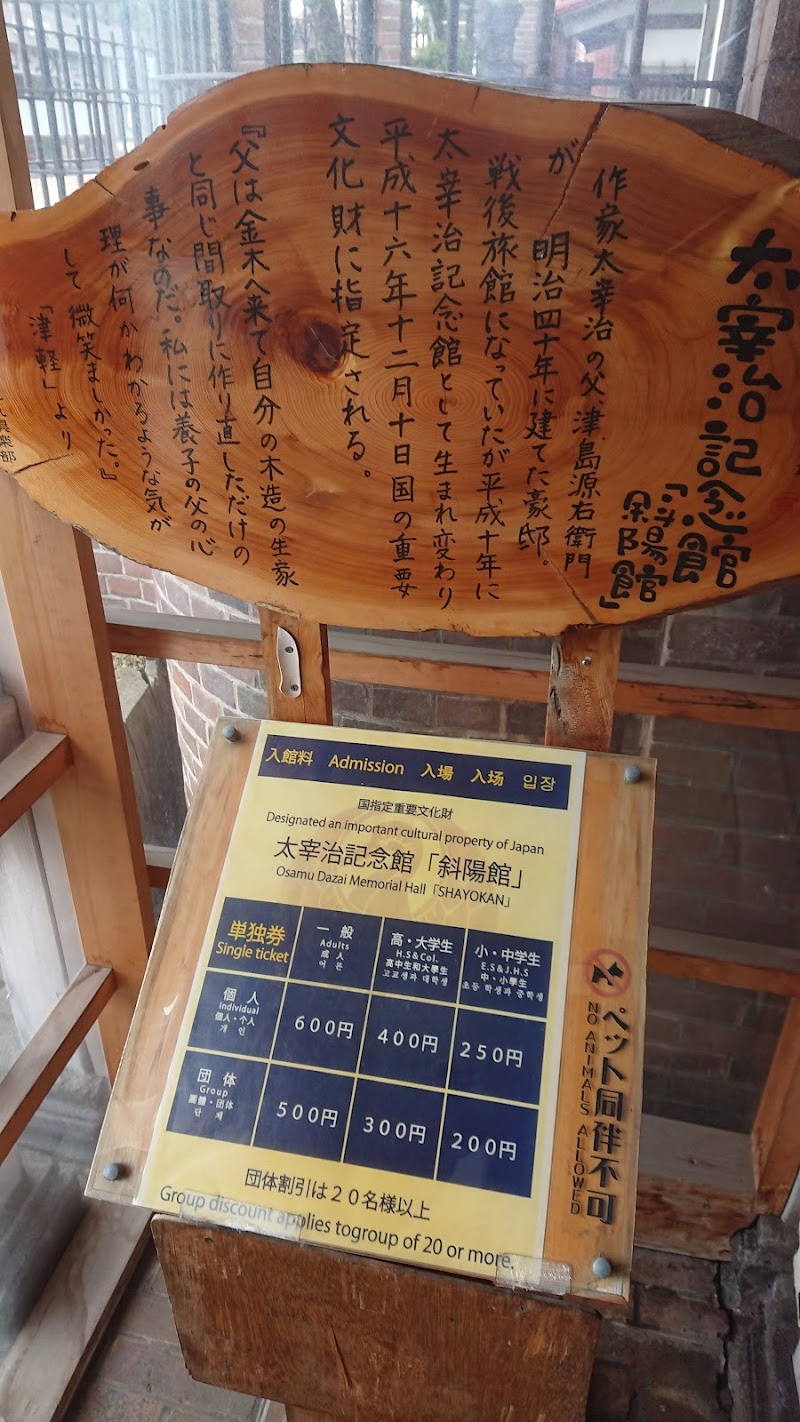 太宰治記念館
「斜陽館」
作家太宰治の父、津島源右衛門
が明治四十年に建てた豪邸。
戦後旅館になっていたが平成十年に
太宰治記念館として生まれ変わり
平成十六年十二月十日国の重要
文化財に指定される。
『父は金木へ来て自分の木造の生家
と同じ間取りに作り直しただけの
事なのだ。私には養子の父の心
理が何かわかるような気が
して微笑ましかった。』
「津軽」より
倶楽部
入館料 Admission 入場 入场 입장
国指定重要文化財
Designated an important cultural property of Japan
太宰治記念館「斜陽館」
Osamu Dazai Memorial Hall「SHAYOKAN」
単独券
Single ticket
一般
Adults
成人
어른
高・大学生
H.S&Col.
高中生和大學生
고교생과 대학생
小・中学生
E.S&J.H.S
中・小學生
초등 학생과 중학생
個人
Individual
個人・个人
개인
600円
400円
250円
団体
Group
團體・团体
단체
500円
300円
200円
団体割引は20名様以上
Group discount applies togroup of 20 or more.
ペット同伴不可
NO ANIMALS ALLOWED